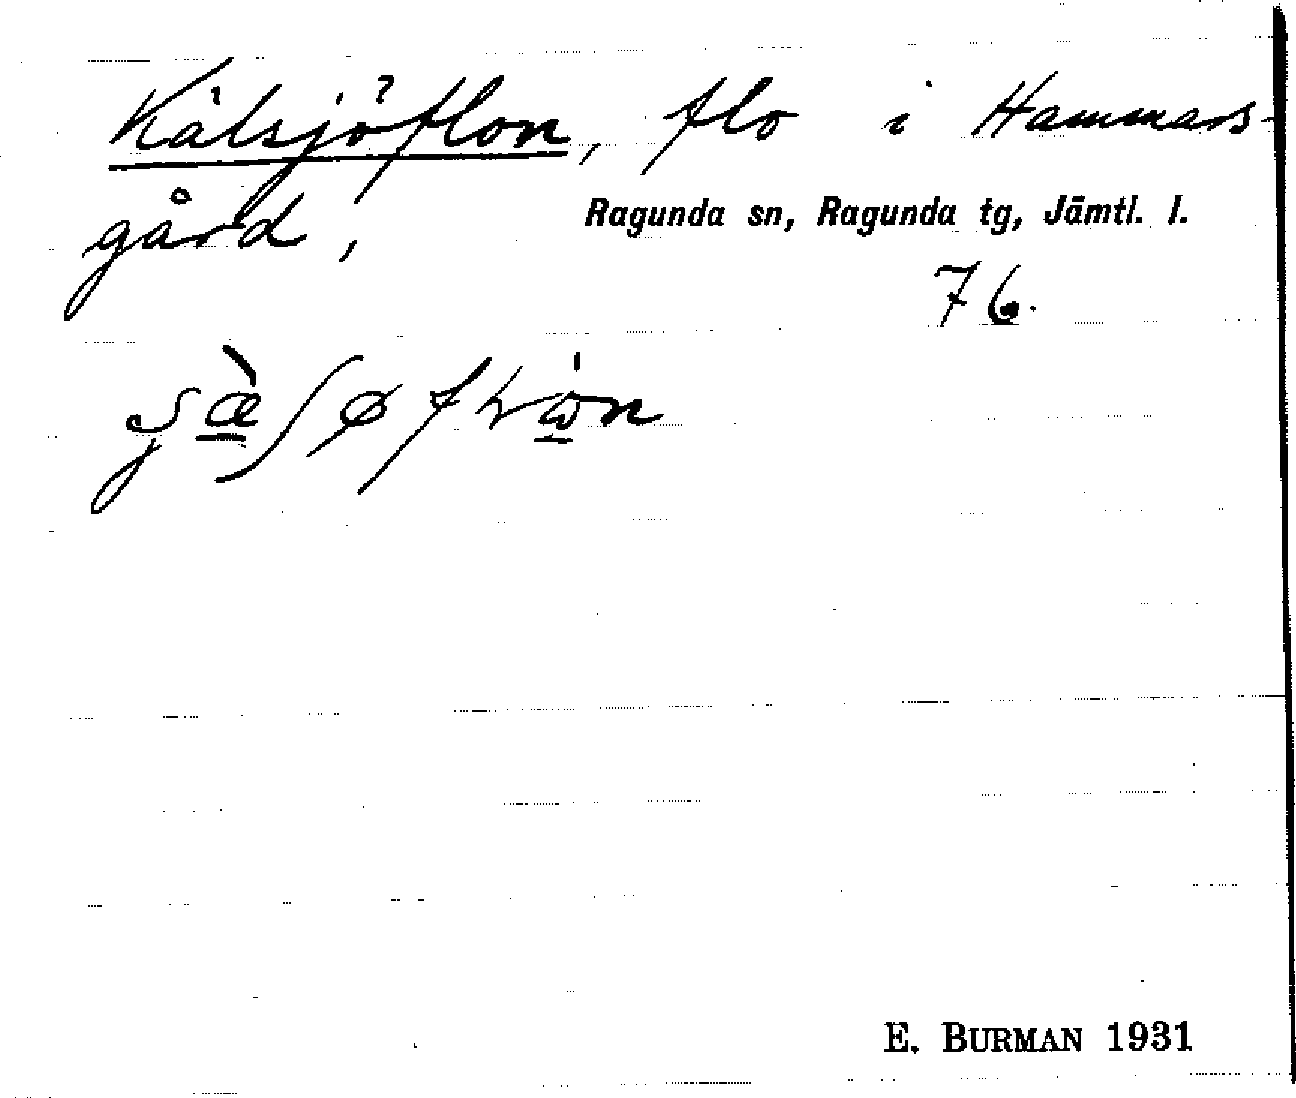 Kälsjöflon, flo i Hammars-
gård,
Ragunda sn, Ragunda tg, Jämtl. l.
76.
E. BURMAN 1931